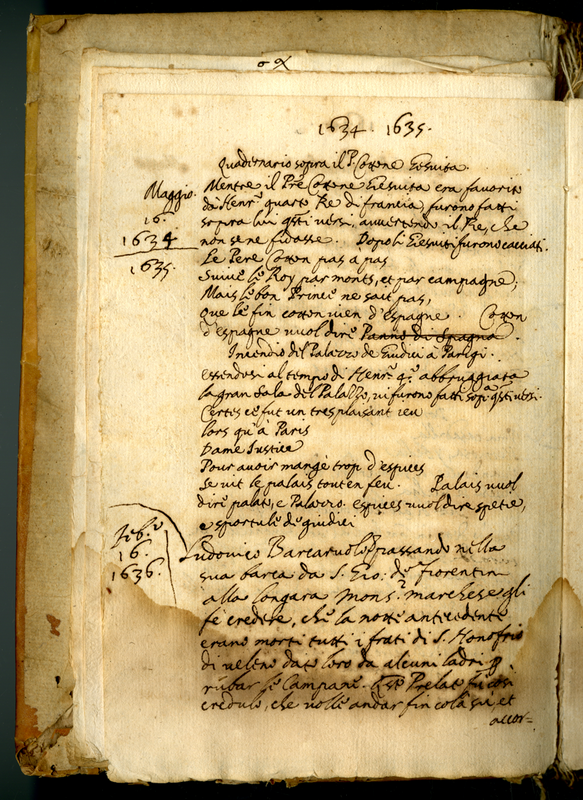 1634. 1635.
Quadernario sopra il P. Cottone Gesuita.
Maggio. 16. 1634
1635.
Mentre il Pre Cottone Gesuita era favorito
da Henr. quarto Re di francia, furono fatti
sopra lui qsti versi, avvertendo il Re, che
non se ne fidasse. Dopo li Gesuiti furono cacciati.
Le Pere Cotton pas a pas
Suive le Roy par monts, et par campagne;
Mais le bon Prince ne sait pas,
Que le fin cotton vien d'espagne. Cotton
d'espagne vuol dire Panno di Spagna.
Incendio del Palazzo de Giudici à Parigi.
essendosi al tempo di Henr. 4.o abbruggiata
la gran Sala del Palazzo, vi furono fatti sopa qsti versi.
Certes ce fut un tres plaisant ieu
lors qu'à Paris
Dame Iustice
Pour avoir mangé trop d'espices
Se vit le palais tout en feu. Palais vuol
dire palato, e Palazzo. espices vuol dire spetie,
e sportule de giudici
Feb.o 16. 1636.
Ludovico Barcaruolo passando nella
sua barca da S. Gio. de fiorentini
alla longara Mons.r marchese gli
fe credere, che la notte antecedente
erano morti tutti i frati di S. Honofrio
di veleno dato loro da alcuni ladri p
rubar le Campane. Prelato fu così
credulo, che volle andar fin colà su, et
accor=